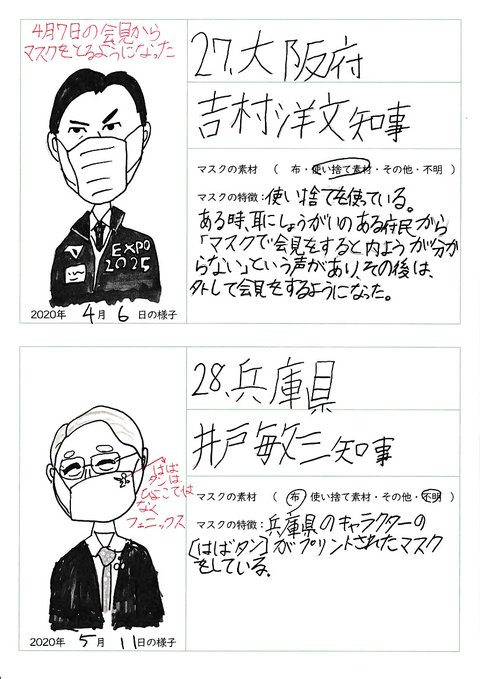 4月7日の会見から
マスクをとるようになった
EXPO
2025
2020年 4月 6日の様子
27.大阪府
吉村洋文知事
マスクの素材 （ 布・使い捨て素材・その他・不明 ）
マスクの特徴：使い捨てを使っている。
ある時、耳にしょうがいのある府民から
「マスクで会見をすると内ようが分か
らない」という声があり、その後は、
外して会見をするようになった。
はば
タンは、
ひよこでは
なく
フェニックス
2020年 5月 11日の様子
28.兵庫県
井戸敏三知事
マスクの素材 （ 布・使い捨て素材・その他・不明 ）
マスクの特徴：兵庫県のキャラクターの
[はばタン]がプリントされたマスク
をしている。